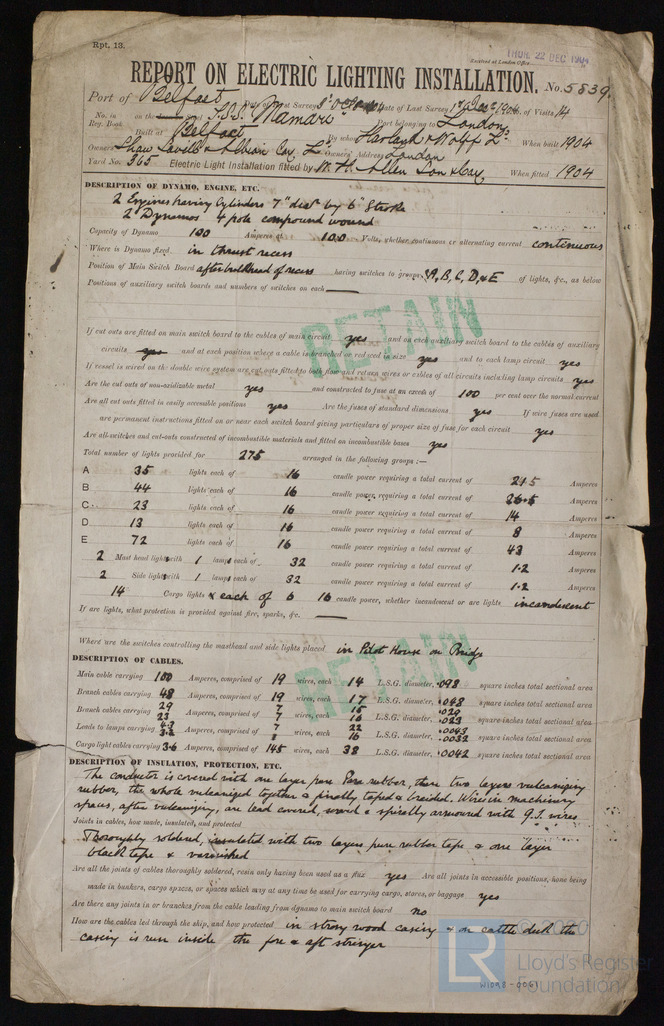 Rpt. 13.
THUR. 22 DEC 1904
Received at London Office
REPORT ON ELECTRIC LIGHTING INSTALLATION. No. 5839.
Port of Belfast Date of First Survey 3rd Oct 04 Date of Last Survey 1st Decr 1904 No. of Visits 14
No. in Reg. Book on the S.S. "Mamari" Port belonging to London
Built at Belfast By whom Harland & Wolff Ld. When built 1904
Owners Shaw Savill & Albion Coy Ld Owners' Address London
Yard No. 365 Electric Light Installation fitted by W. H. Allen Son & Coy When fitted 1904
DESCRIPTION OF DYNAMO, ENGINE, ETC.
2 Engines having Cylinders 7" diar by 6" Stroke
2 Dynamos 4 pole compound wound
Capacity of Dynamo 100 Amperes at 100 Volts, whether continuous or alternating current continuous
Where is Dynamo fixed in thrust recess
Position of Main Switch Board after bulkhead of recess having switches to groups A, B, C, D, & E of lights, &c., as below
Positions of auxiliary switch boards and numbers of switches on each
RETAIN
If cut outs are fitted on main switch board to the cables of main circuit yes and on each auxiliary switch board to the cables of auxiliary
circuits yes and at each position where a cable is branched or reduced in size yes and to each lamp circuit yes
If vessel is wired on the double wire system are cut outs fitted to both flow and return wires or cables of all circuits including lamp circuits yes
Are the cut outs of non-oxidizable metal yes and constructed to fuse at an excess of 100 per cent over the normal current
Are all cut outs fitted in easily accessible positions yes Are the fuses of standard dimensions yes If wire fuses are used
are permanent instructions fitted on or near each switch board giving particulars of proper size of fuse for each circuit yes
Are all switches and cut-outs constructed of incombustible materials and fitted on incombustible bases yes
Total number of lights provided for 275 arranged in the following groups :—
A 35 lights each of 16 candle power requiring a total current of 21.5 Amperes
B 44 lights each of 16 candle power requiring a total current of 26.5 Amperes
C 23 lights each of 16 candle power requiring a total current of 14 Amperes
D 13 lights each of 16 candle power requiring a total current of 8 Amperes
E 72 lights each of 16 candle power requiring a total current of 43 Amperes
2 Mast head light with 1 lamp each of 32 candle power requiring a total current of 1.2 Amperes
2 Side light with 1 lamp each of 32 candle power requiring a total current of 1.2 Amperes
14 Cargo lights each of 6 16 candle power, whether incandescent or arc lights incandescent
If arc lights, what protection is provided against fire, sparks, &c.
Where are the switches controlling the masthead and side lights placed in Pilot House on Bridge
RETAIN
DESCRIPTION OF CABLES.
Main cable carrying 100 Amperes, comprised of 19 wires, each 14 L.S.G. diameter, .098 square inches total sectional area
Branch cables carrying 48 Amperes, comprised of 19 wires, each 17 L.S.G. diameter, .048 square inches total sectional area
Branch cables carrying 29 23 Amperes, comprised of 7 7 wires, each 15 16 L.S.G. diameter, .029 .023 square inches total sectional area
Leads to lamps carrying 4.3 3.2 Amperes, comprised of 7 1 wires, each 22 16 L.S.G. diameter, .0043 .0032 square inches total sectional area
Cargo light cables carrying 3.6 Amperes, comprised of 145 wires, each 38 L.S.G. diameter, .0042 square inches total sectional area
DESCRIPTION OF INSULATION, PROTECTION, ETC.
The conductor is covered with one layer pure Para rubber, then two layers vulcanizing
rubber, the whole vulcanized together & finally taped & braided. Wires in machinery
spaces, after vulcanizing, are lead covered, and spirally armoured with G.I. wires
Joints in cables, how made, insulated, and protected
Thoroughly soldered, insulated with two layers pure rubber tape & one layer
black tape & varnished
Are all the joints of cables thoroughly soldered, resin only having been used as a flux yes Are all joints in accessible positions, none being
made in bunkers, cargo spaces, or spaces which may at any time be used for carrying cargo, stores, or baggage yes
Are there any joints in or branches from the cable leading from dynamo to main switch board no
How are the cables led through the ship, and how protected in strong wood casing & on cattle deck the
casing is run inside the fore & aft stringer
© 2020
LR Lloyd's Register
Foundation
W1098-0061